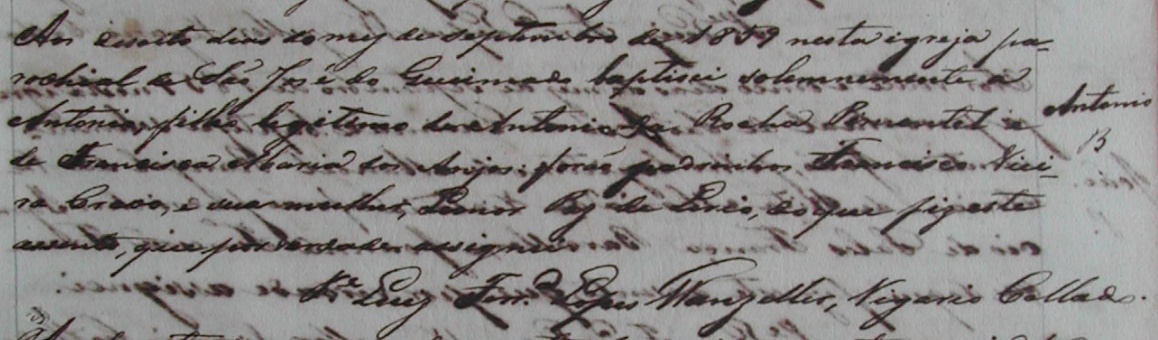 Aos desoito dias do mez de septembro de 1859 nesta igreja pa-
rochial de São José do Gueimado baptisei solemnemente a
Antonio, filho legitimo de Antonio da Rocha Pimentel e
de Francisca Maria dos Anjos: forão padrinhos Francisco Viei-
ra e sua mulher, Leonor do que fiz este
assento, que por verdade assignei
Pe Luiz Vigario Collado.
Antonio
B